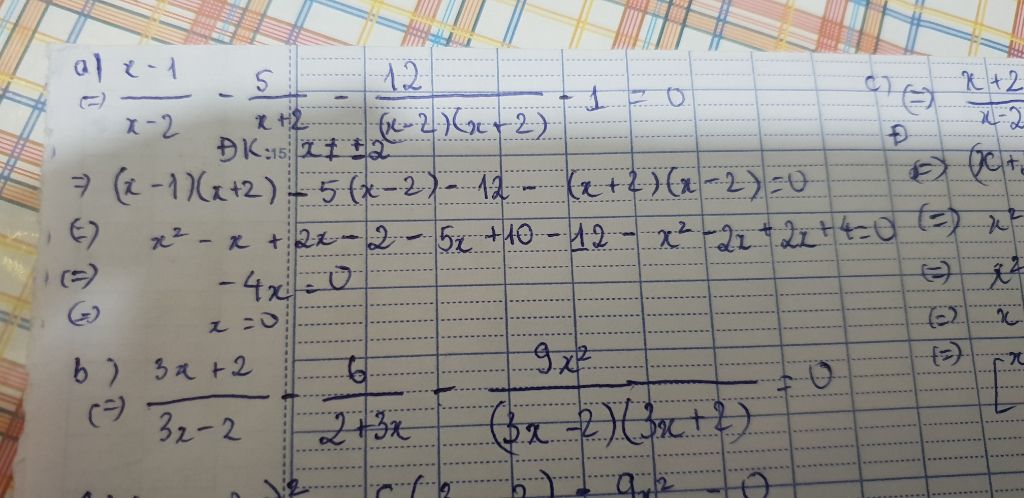 a) (=) (x-1)/(x-2) - 5/(x+2) - 12/((x-2)(x+2)) - 1 = 0
ĐK: x ≠ ±2
=> (x-1)(x+2) - 5(x-2) - 12 - (x+2)(x-2) = 0
(=) x² - x + 2x - 2 - 5x + 10 - 12 - x² - 2x + 2x + 4 = 0
(=) -4x = 0
(=) x = 0
b) (=) (3x+2)/(3x-2) - 6/(2+3x) - 9x²/((3x-2)(3x+2)) = 0
c) (=) (x+2)/(x-2)
Đ
(=) (x+
(=) x²
(=) x²
(=) x
(=) [x